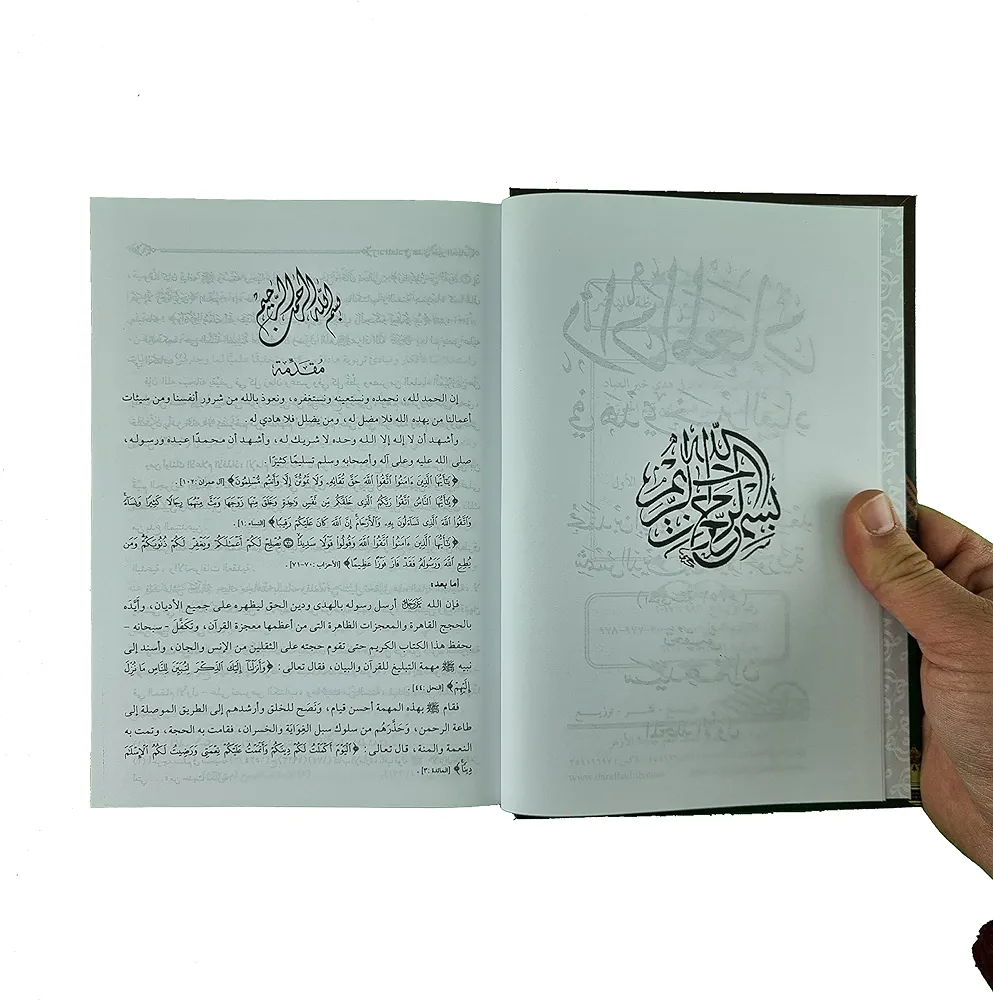 بسم الله الرحمن الرحيم
بسم الله الرحمن الرحيم
مُقَدِّمَة
إن الحمد لله، نحمده ونستعينه ونستغفره، ونعوذ بالله من شرور أنفسنا ومن سيئات
أعمالنا من يهده الله فلا مضل له، ومن يضلل فلا هادي له.
وأشهد أن لا إله إلا الله وحده لا شريك له، وأشهد أن محمدًا عبده ورسوله،
صلى الله عليه وعلى آله وأصحابه وسلم تسليمًا كثيرًا.
﴿يَٰٓأَيُّهَا ٱلَّذِينَ ءَامَنُوا۟ ٱتَّقُوا۟ ٱللَّهَ حَقَّ تُقَاتِهِۦ وَلَا تَمُوتُنَّ إِلَّا وَأَنتُم مُّسْلِمُونَ﴾ [آل عمران: ١٠٢].
﴿يَٰٓأَيُّهَا ٱلنَّاسُ ٱتَّقُوا۟ رَبَّكُمُ ٱلَّذِى خَلَقَكُم مِّن نَّفْسٍ وَٰحِدَةٍ وَخَلَقَ مِنْهَا زَوْجَهَا وَبَثَّ مِنْهُمَا رِجَالًا كَثِيرًا وَنِسَآءً
وَٱتَّقُوا۟ ٱللَّهَ ٱلَّذِى تَسَآءَلُونَ بِهِۦ وَٱلْأَرْحَامَ إِنَّ ٱللَّهَ كَانَ عَلَيْكُمْ رَقِيبًا﴾ [النساء: ١].
﴿يَٰٓأَيُّهَا ٱلَّذِينَ ءَامَنُوا۟ ٱتَّقُوا۟ ٱللَّهَ وَقُولُوا۟ قَوْلًا سَدِيدًا ۝ يُصْلِحْ لَكُمْ أَعْمَٰلَكُمْ وَيَغْفِرْ لَكُمْ ذُنُوبَكُمْ وَمَن
يُطِعِ ٱللَّهَ وَرَسُولَهُۥ فَقَدْ فَازَ فَوْزًا عَظِيمًا﴾ [الأحزاب: ٧٠-٧١].
أما بعد:
فإن الله عَزَّوَجَلَّ أرسل رسوله بالهدى ودين الحق ليظهره على جميع الأديان، وأَيَّده
بالحجج القاهرة والمعجزات الظاهرة التى من أعظمها معجزة القرآن، وتَكَفَّلَ - سبحانه -
بحفظ هذا الكتاب الكريم حتى تقوم حجته على الثقلين من الإنس والجان، وأسند إلى
نبيه ﷺ مهمة التبليغ للقرآن والبيان، فقال تعالى: ﴿وَأَنزَلْنَآ إِلَيْكَ ٱلذِّكْرَ لِتُبَيِّنَ لِلنَّاسِ مَا نُزِّلَ
إِلَيْهِمْ﴾ [النحل: ٤٤].
فقام ﷺ بهذه المهمة أحسن قيام، ونَصَح للخلق وأرشدهم إلى الطريق الموصلة إلى
طاعة الرحمن، وحَذَّرَهُم من سلوك سبل الغِوَايَة والخسران، فقامت به الحجة، وتمت به
النعمة والمنة، قال تعالى: ﴿ٱلْيَوْمَ أَكْمَلْتُ لَكُمْ دِينَكُمْ وَأَتْمَمْتُ عَلَيْكُمْ نِعْمَتِى وَرَضِيتُ لَكُمُ ٱلْإِسْلَٰمَ
دِينًا﴾ [المائدة: ٣].